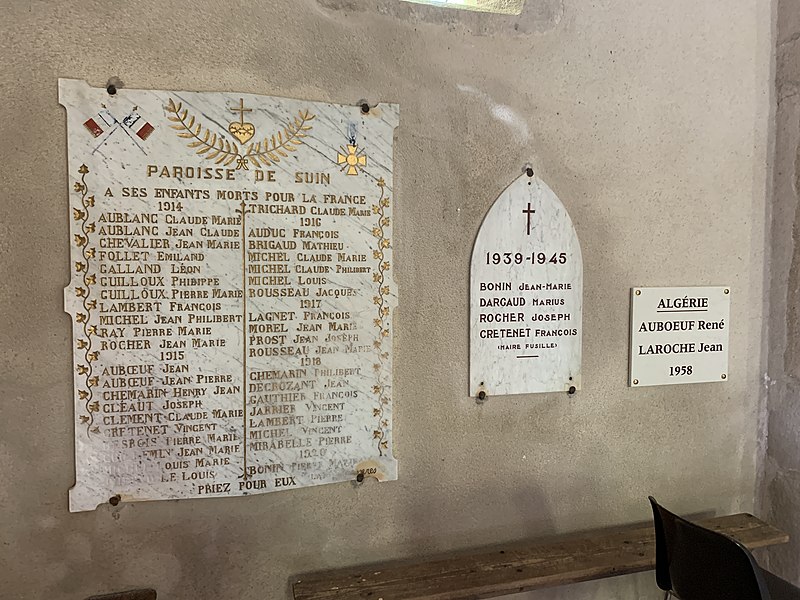 PAROISSE DE SUIN
A SES ENFANTS MORTS POUR LA FRANCE
1914
AUBLANC CLAUDE MARIE
AUBLANC JEAN CLAUDE
CHEVALIER JEAN MARIE
FOLLET EMILAND
GALLAND LÉON
GUILLOUX PHIBIPPE
GUILLOUX PIERRE MARIE
LAMBERT FRANÇOIS
MICHEL JEAN PHILIBERT
RAY PIERRE MARIE
ROCHER JEAN MARIE
1915
AUBŒUF JEAN
AUBŒUF JEAN PIERRE
CHEMARIN HENRY JEAN
CLÉAUT JOSEPH
CLEMENT CLAUDE MARIE
CRETENET VINCENT
PIERRE MARIE
JEAN MARIE
LOUIS MARIE
LOUIS
TRICHARD CLAUDE MARIE
1916
AUDUC FRANÇOIS
BRIGAUD MATHIEU
MICHEL CLAUDE MARIE
MICHEL CLAUDE PHILIBERT
MICHEL LOUIS
ROUSSEAU JACQUES
1917
LAGNET FRANÇOIS
MOREL JEAN MARIE
PROST JEAN JOSEPH
ROUSSEAU JEAN MARIE
1918
CHEMARIN PHILIBERT
DECROZANT JEAN
GAUTHIER FRANÇOIS
JARRIER VINCENT
LAMBERT PIERRE
MICHEL VINCENT
MIRABELLE PIERRE
1920
BONIN PIERRE MARIE
PRIEZ POUR EUX
1939-1945
BONIN JEAN-MARIE
DARGAUD MARIUS
ROCHER JOSEPH
CRETENET FRANÇOIS
(MAIRE FUSILLÉ)
ALGÉRIE
AUBOEUF René
LAROCHE Jean
1958